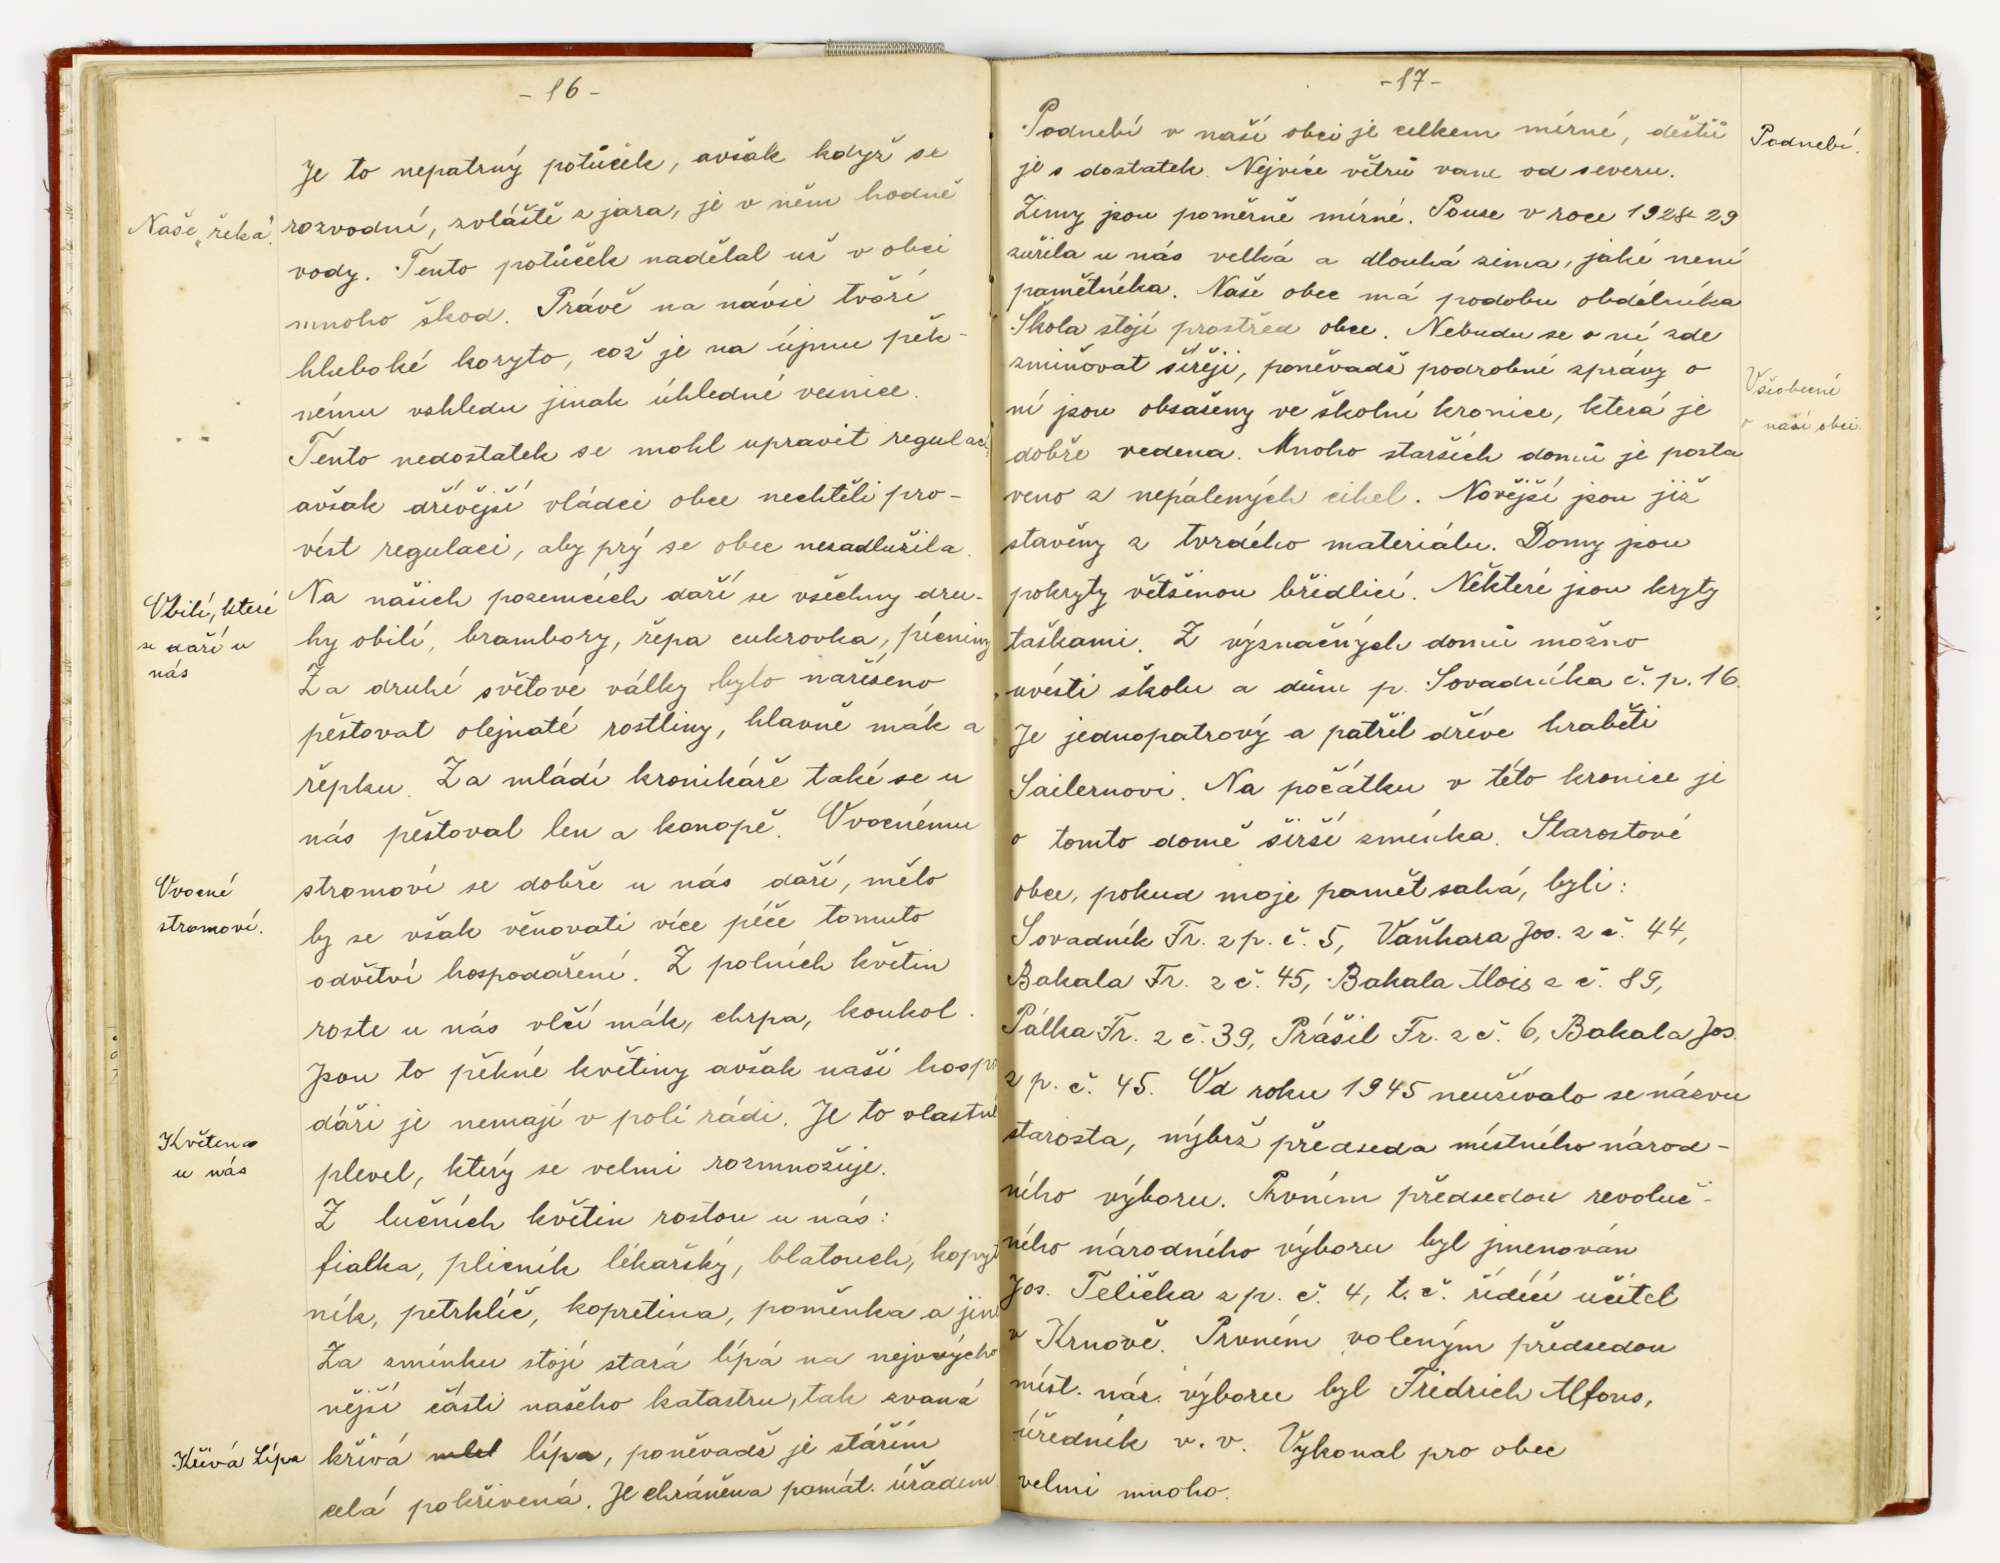 - 16 -
Je to nepatrný potůček, avšak když se
Naše „řeka“.
rozvodní, zvláště z jara, je v něm hodně
vody. Tento potůček nadělal už v obci
mnoho škod. Právě na návsi tvoří
hluboké koryto, což je na újmu pěk-
nému vzhledu jinak úhledné vesnice.
Tento nedostatek se mohl upravit regulací,
avšak dřívější vládci obce nechtěli pro-
vést regulaci, aby prý se obec nezadlužila.
Obilí, které
se daří u
nás
Na našich pozemcích daří se všechny dru-
hy obilí, brambory, řepa cukrovka, pícniny
Za druhé světové války bylo nařízeno
pěstovat olejnaté rostliny, hlavně mák a
řepku. Za mládí kronikáře také se u
nás pěstoval len a konopě. Ovocnému
Ovocné
stromoví.
stromoví se dobře u nás daří, mělo
by se však věnovati více péče tomuto
odvětví hospodaření. Z polních květin
roste u nás vlčí mák, chrpa, koukol.
Jsou to pěkné květiny avšak naši hospo
dáři je nemají v poli rádi. Je to vlastně
Květena
u nás
plevel, který se velmi rozmnožuje.
Z lučních květin rostou u nás:
fialka, plicník lékařský, blatouch, kopyt
ník, petrklíč, kopretina, poměnka a jiné
Za zmínku stojí stará lípa na nejvýcho
nější části našeho katastru, tak zvaná
Křivá Lípa
křivá lípa, poněvadž je stářím
celá pokřivená. Je chráněna památ. úřadem.
- 17 -
Podnebí v naší obci je celkem mírné, deštů
Podnebí.
je s dostatek. Nejvíce větrů vane od severu.
Zimy jsou poměrně mírné. Pouze v roce 1928 29
zuřila u nás velká a dlouhá zima, jaké není
pamětníka. Naše obec má podobu obdélníka
Škola stojí prostřed obce. Nebudu se o ní zde
zmiňovat šířeji, poněvadž podrobné zprávy o
Všeobecně
o naší obci.
ní jsou obsaženy ve školní kronice, která je
dobře vedena. Mnoho starších domů je posta
veno z nepálených cihel. Novější jsou již
stavěny z tvrdého materiálu. Domy jsou
pokryty většinou břidlicí. Některé jsou kryty
taškami. Z význačných domů možno
uvésti školu a dům p. Sovadníka č. p. 16.
Je jednopatrový a patřil dříve hraběti
Sailernovi. Na počátku v této kronice je
o tomto domě širší zmínka. Starostové
obce, pokud moje paměť sahá, byli:
Sovadník Fr. z p. č. 5, Vaňhara Jos. z č. 44,
Bakala Fr. z č. 45, Bakala Alois z č. 89,
Pálka Fr. z č. 39, Prášil Fr. z č. 6, Bakala Jos.
z p. č. 45. Od roku 1945 neužívalo se názvu
starosta, nýbrž předseda místního národ-
ního výboru. Prvním předsedou revoluč-
ního národního výboru byl jmenován
Jos. Telička z p. č. 4, t. č. řídící učitel
v Krnově. Prvním voleným předsedou
míst. nár. výboru byl Fridrich Alfons,
úředník v. v. Vykonal pro obec
velmi mnoho.